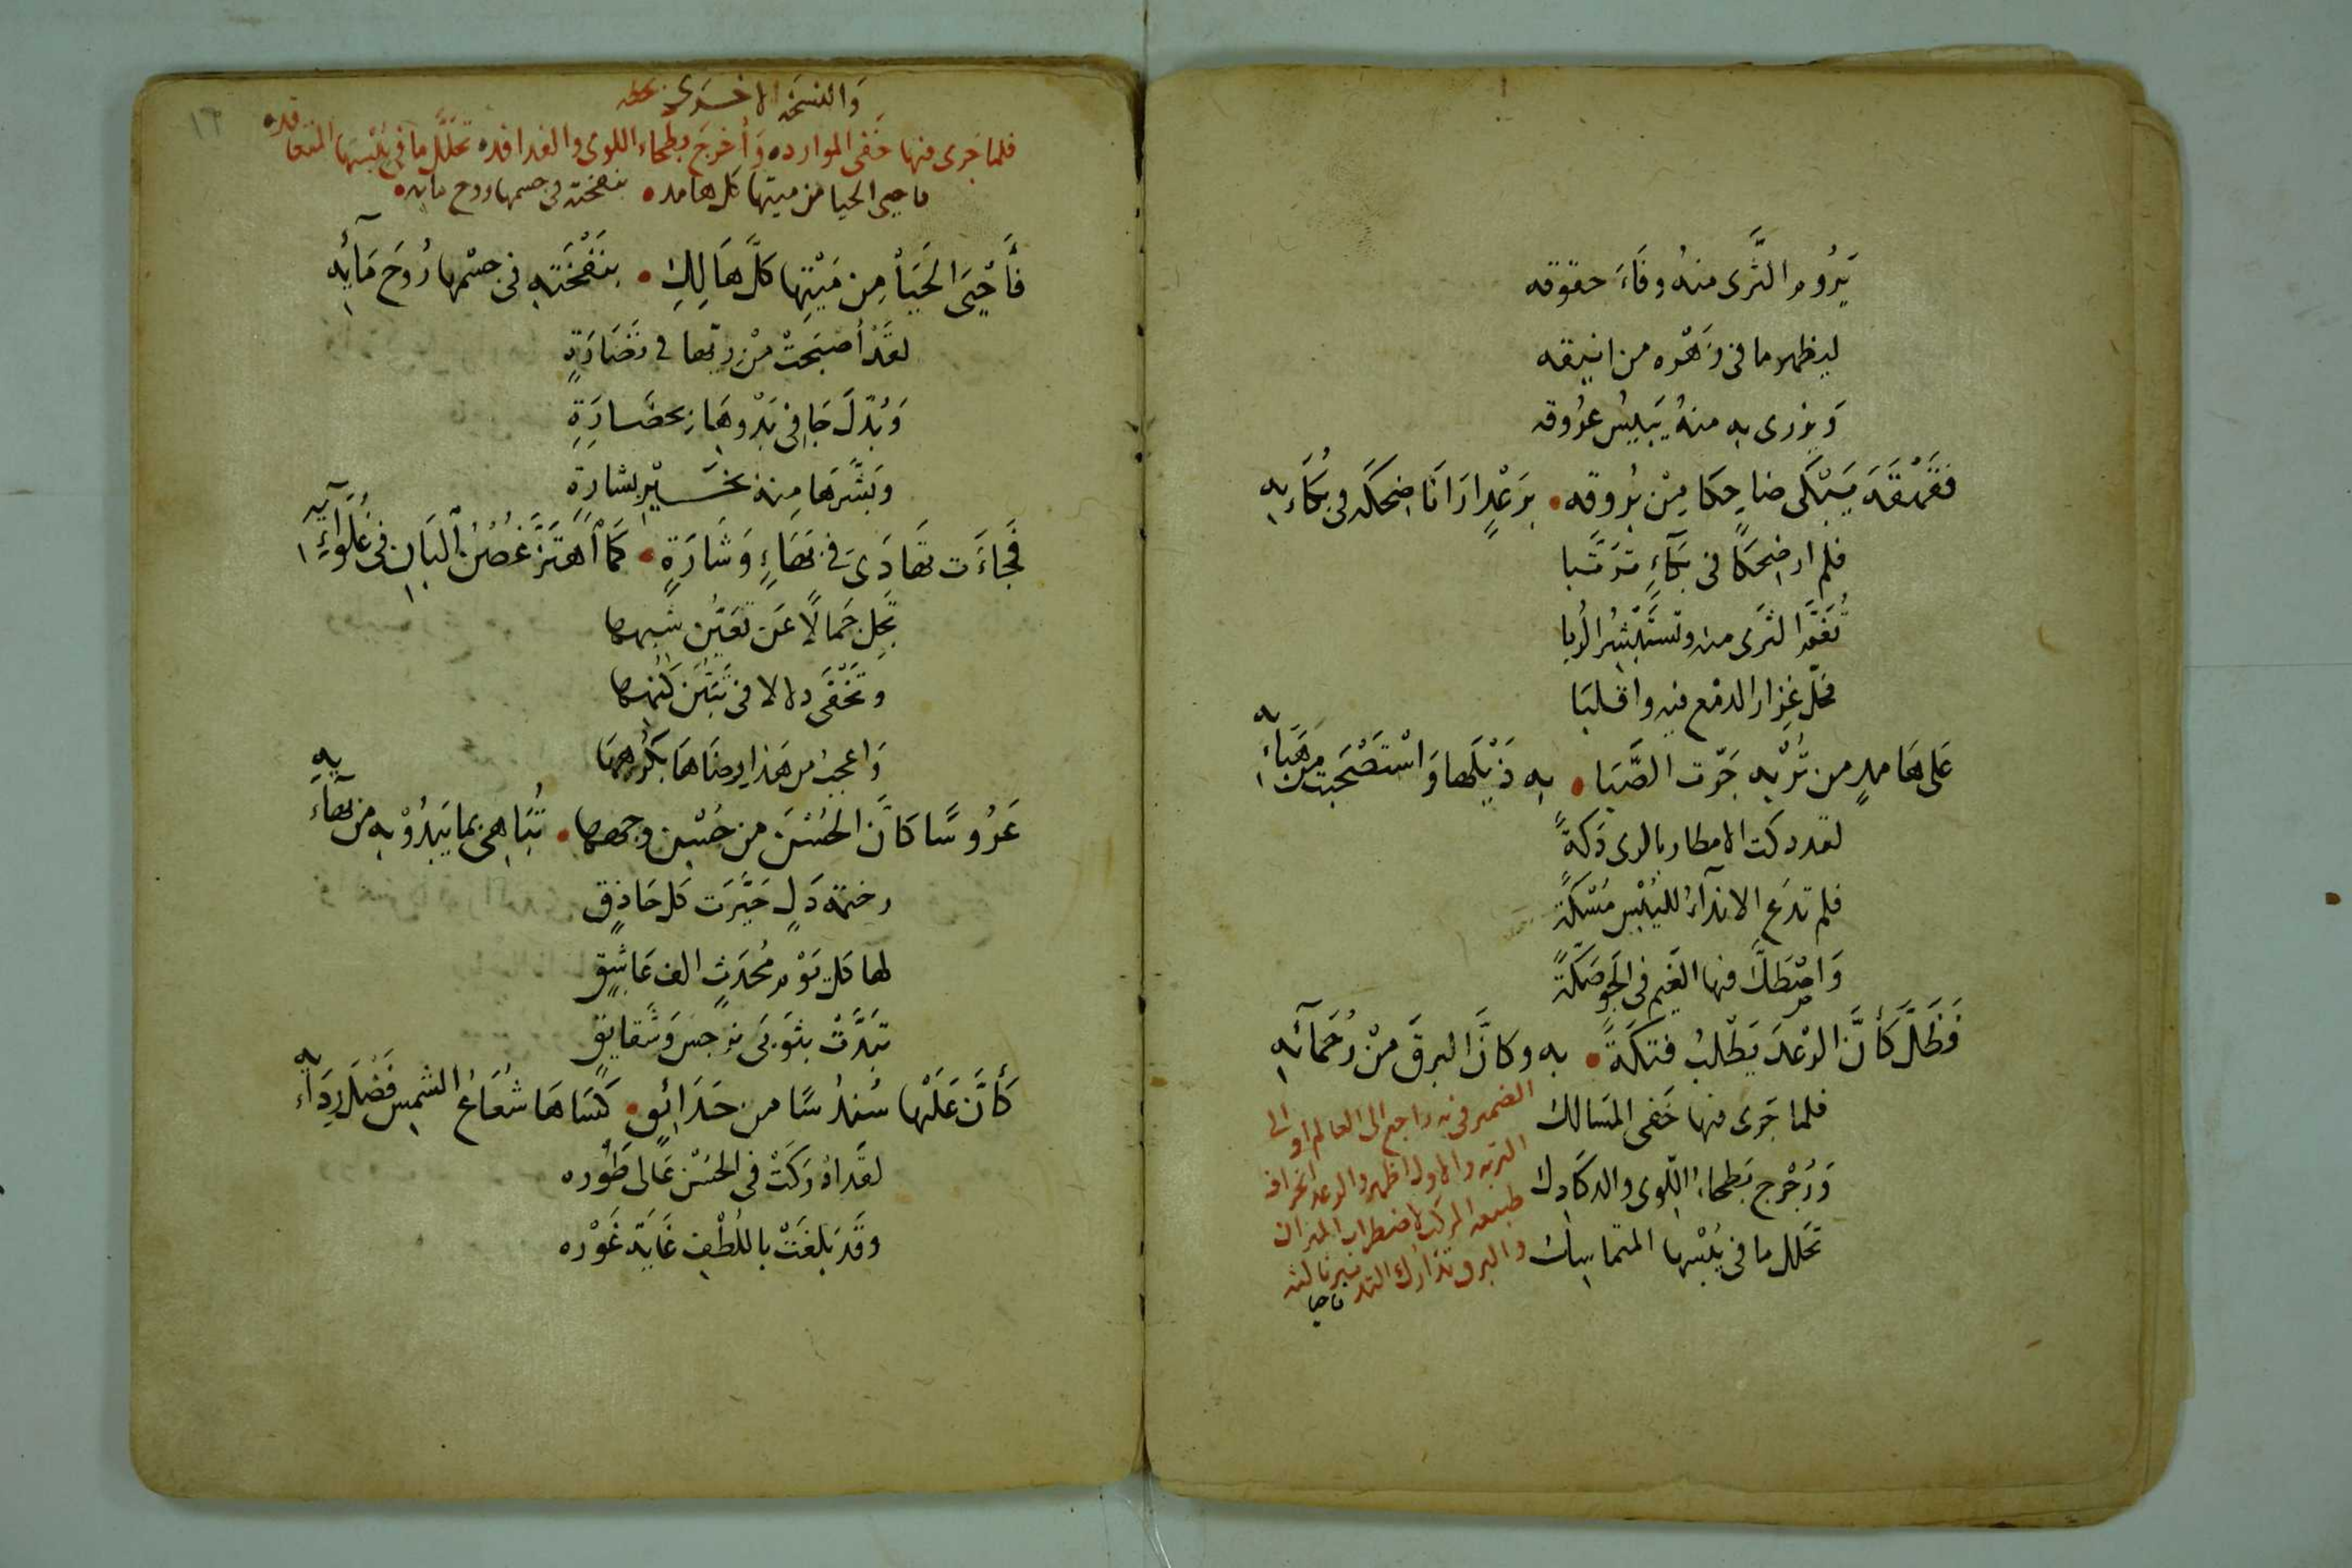 يَرُوم الثَّرى منهُ وفَاءَ حقوقه
ليظهر ما فى زَهْره من انيقه
وَيروى به منهُ يَبِيسُ عرُوقه
فَقَهْقَهَ يَبْكى ضاحِكا مِنْ بُروقه • بِرَعْدٍ ارَانَا ضِحكَه فى بُكَاءِيه
فلم ار ضِحكًا فى بكَآءٍ تَرَتَّبا
الثرى منه وتستَبْشِرُ الرُبا
فحلّ غِزار الدمع فيه واقلبَا
عَلى هَامدٍ من تُرْبِه جَرّت الصَّبَا • بِه ذَيْلَها وَاسْتَصْحَبت مِن هَبَاءِيه
لقد دكت الامطار بالوى دَكةً
فلم تدَع الانداءُ لليُبْسِ مَسْكَةً
وَاصْطكَّ فيها الغَيم فى الجَو صَكّةً
فَظَلَّ كَأنَّ الرعْدَ يَطْلُبُ فَتكَةً • بِه وكانَّ البرقَ مِنْ رُحَمآئه
فلما جَرى فيها خَفى المَسَالك
وَرُجْرِج بَطحاءُ اللّوى والدكَادِك
تحَلل ما فى يُبْسِها المتماسك
الضمير فى به راجع الى العالم او الى
التربه والاول اظهر والرعد انحراف
طبيعه المركب لاضطراب الميزان
والبرق تدارك التدبير بالثـ
فاحيا
١٦
وَالنسخه الاخرى بخطه
فلما جَرى فيها خَفى الموارد • وَأخرَج بطحاء اللوى والفدافد • تحلَّل ما فى يُبْسِها المتعاقد •
فاحيى الحيا من ميتها كل هامد • بنفخته فى جسمها روح مايه •
فأَحْيَى الحَيَا مِن مَيْتِها كلَّ هَالِكِ • بنَفْخَتِه فى جِسْمِها رُوحَ مَآئِه
لقَدْ أصْبَحَتْ مِنْ رِيّها فى نَضَارَةٍ
وَبُدّلَ جَافِى بَدْوِهَا بِحضَارَةِ
وَبَشَّرهَا مِنهُ بخَيْرِ بِشارَةٍ
فَجَاءَت تَهَادَى فى بَهَاءٍ وَشَارَةٍ • كَمَا اهْتَزَّ غُصْنُ البَانِ فى غُلَوَآئِه
تَجِل جَمالًا عَن تَعَيُّن شِبْهها
وَتَخْفَى دلالا فى تَبَيُّن كُنْهها
وَاعجَبُ من هَذا رِضَاهَا بكُرْهِهَا
عَرُوسًا كَانَّ الحُسْنَ من حُسْنِ وجهها • تُبَاهى بما يَبْدُوْ بِه من بَهَآءِيه
رخيمَة دَلٍ حَيَّرَت كل حَاذِقٍ
لها كل يَوْم مُحدَثٍ الف عَاشِقٍ
تَبَدَّتْ بثَوبَى نرجسٍ وَشَقايِقٍ
كَأنَّ عَلَيْها سُنْدُسًا من حَدَائِقٍ • كَسَاهَا شُعَاعُ الشمسِ فَضْلَ رِدَاءِيه
لقَد ادْرَكَتْ فى الحُسْن عَالى طَوْره
وقَد بَلغَتْ باللُطْفِ غَايَة غَوْره